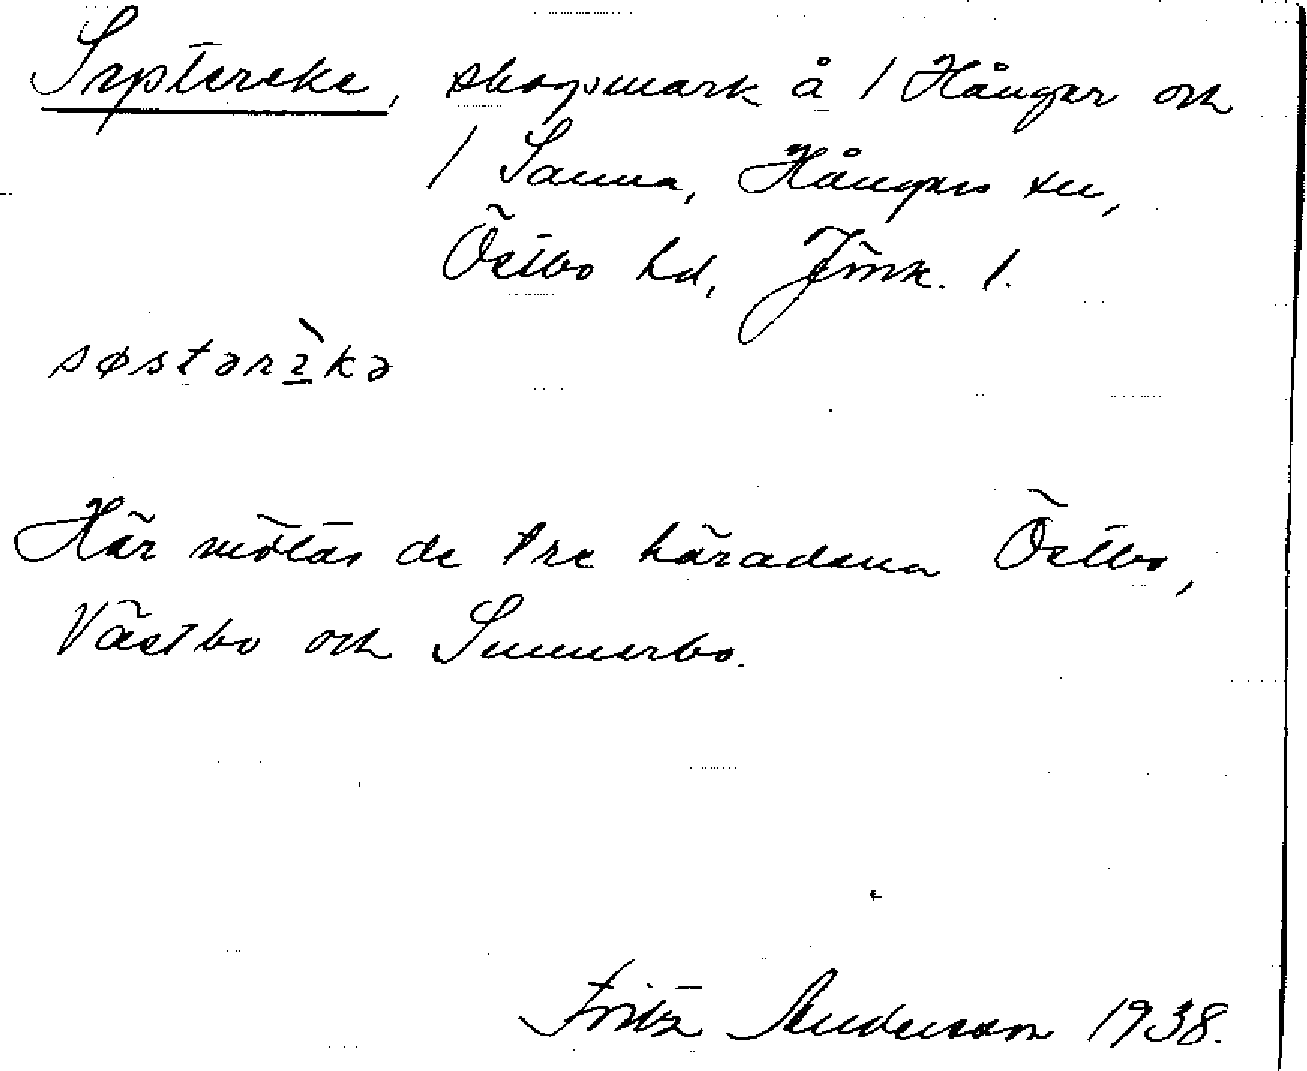 Systereke, skogsmark å 1 Hånger och
1 Sanna, Hångers sn,
Östbo hd, Jönk. l.
søstərikə
Här mötas de tre häradena Östbo,
Västbo och Sunnerbo.
Fritz Anderson 1938.